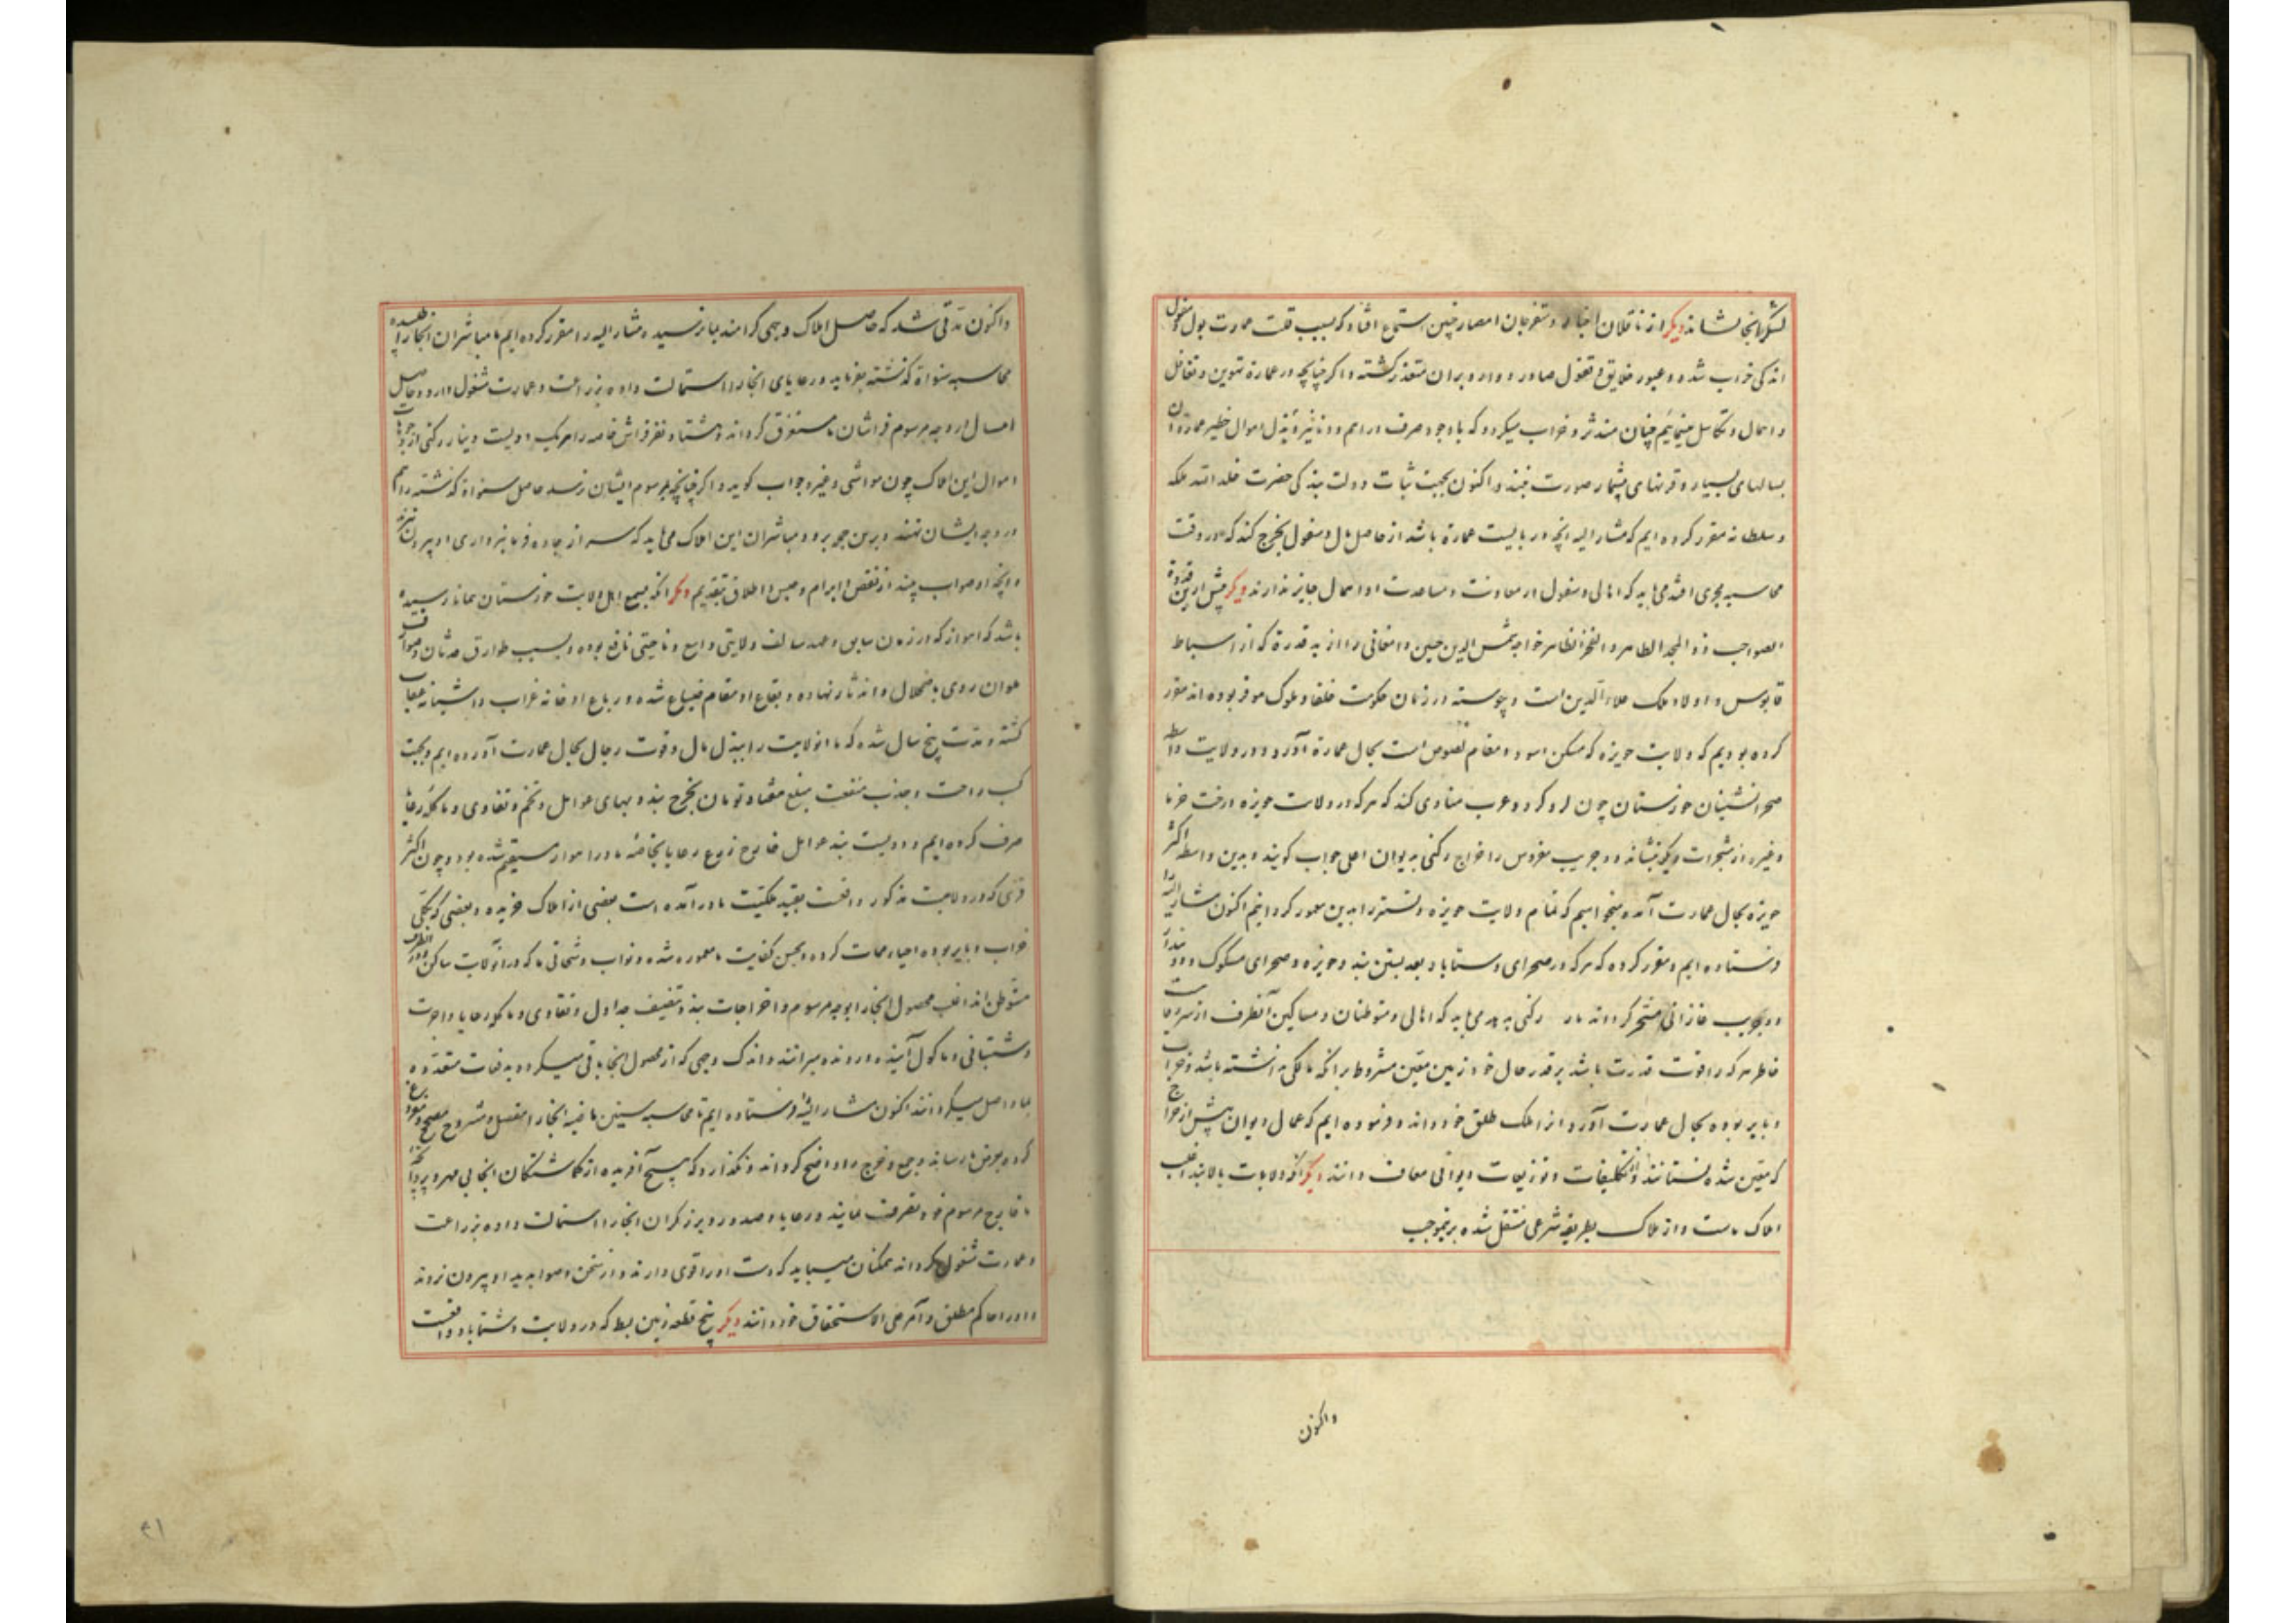 لشکریانجا بنشاند دیگر از ناقلان اخبار و متفرجان امصار چنین استماع افتاد که بسبب قلت عمارت پول دزفول
اندکی خراب شده و عبور خلایق و قفول صادر و وارد بر آن متعذر گشته و اگر چنانچه در عمارة تهوین و تغافل
و اهمال و تکاسل مینمائیم چنان مندثر و خراب میگردد که باوجود صرف دراهم و دنانیر و بذل اموال خطیر عمارت آن
بسالهای بسیار و قرنهای بیشمار صورت نبندد و اکنون بجهت ثبات دولت بندگی حضرت خلد الله ملکه
و سلطانه مقرر کرده ایم که مشار الیه آنچه در بایست عمارة باشد از حاصل مال دسفول بخرج کند که در وقت
محاسبه مجری افتد می باید که اهالی دسفول از معاونت و مساعدت او اهمال جایز ندارند دیگر پیش ازین قدوة
الصواحب ذو المجد الطاهر و الفخر الظاهر خواجه شمس الدین حسین دامغانی را از بد قدرة که از اسباط
قابوس و اولاد ملک علاء الدین است و پیوسته در زمان حکومت خلفا و ملوک موقر بوده اند مقرر
کرده بودیم که ولایت حویزه که مسکن اسود و مقام لصوص است بحال عمارة آورد و در ولایت واسط
صحرانشینان خوزستان چون لر و کرد و عرب منادی کند که هرکه در ولایت حویزه درخت خرما
و غیره از شجرات دیگر بنشاند دو جریب مغروس را خراج رکنی بدیوان اعلی جواب گویند و بدین واسطه اکثر
حویزه بحال عمارت آمده میخواهیم که تمام ولایت حویزه و تستر را بدین معمور گردانیم اکنون مشار الیه را
فرستاده ایم و مقرر کرده که هرکه در صحرای دستاباد بعد بستن بند و حویزه و صحرای مسکوک و دو بندار
دو جریب غازانی مشجر گرداند رکنی بدهد می باید که اهالی و متوطنان و ساکنین آنطرف از سر رفاهیت
خاطر هر که را قوت قدرت باشد بر قدر حال خود زمین معین مشروط برآنکه مالکی نداشته باشد و خراب
و بایر بوده بحال عمارت آورد و آنرا ملک طلق خود داند و فرموده ایم که عمال دیوان بیش از خراج
که معین شده نستانند و از تکلیفات و توزیعات دیوانی معاف دانند دیگر آنکه ولایات بالا بند اغلب
املاک ماست و از ملاک بطریقه شرعی منتقل شده برینموجب
واکنون
واکنون مدتی شد که حاصل املاک وجهی گرامند بما نرسیده مشار الیه را مقرر کرده ایم تا مباشران آنجا را طلبیده
محاسبه سنواة گذشته بفرماید و رعایای آنجا را استمالت داده بزراعت و عمارت مشغول دارد و حاصل
امسال در وجه مرسوم فراشان ما مستغرق گرداند و هشتاد نفر فراش خاصه را هریک دویست دینار رکنی از وجوهات
اموال این املاک چون مواشی و غیره جواب گوید و اگر چنانچه بمرسوم ایشان نرسد حاصل سنواة گذشته را هم
در وجه ایشان نهند و برین جمله برود و مباشران این املاک می باید که سر از جاده فرمانبرداری او بیرون نبرند
و آنچه او صواب بیند از نقض و ابرام و حبس و اطلاق بتقدیم دیگر آنکه بسمع اهل ولایت خوزستان همانا رسیده
باشد که اهواز که در زمان سابق و عهد سالف ولایتی واسع و ناحیتی نافع بوده و بسبب طوارق حدثان و صواعق
هوان روی باضمحلال و اندثار نهاده و بقاع او مقام ضباع شده و رباع او خانه غراب و آشیانه عقاب
گشته و مدت پنج سال شده که ما آنولایت را ببذل مال و قوت رجال بحال عمارت آورده ایم و بجهت
کسب راحت و جذب منفعت مبلغ هفتاد تومان بخرج بند و بهای عوامل و تخم و تقاوی و ماکول رعایا
صرف کرده ایم و دویست بند عوامل خارج زروع رعایا بخاصه ما در اهواز مستقیم شده بود و چون اکثر
قری که در ولایت مذکور واقعست بقید ملکیت ما درآمده است بعضی از املاک خریده و بعضی که بکلی
خراب و بایر بوده احیاء ممات کرده و بحسن کفایت ما معموره شده و نواب و شحانی ما که در آنولایت ساکن و در آنطرف
متوطن اند اغلب محصول آنجا را بوجه مرسوم و اخراجات بند و تنقیف جداول و تقاوی و ماکول رعایا و اجرت
دشتبانی و ماکول آینده و رونده میرانند و اندک وجهی که از محصول آنجا باقی میگردد بدفعات متعدده
بما واصل میگردانند اکنون مشار الیه را فرستاده ایم تا محاسبه سنین ماضیه آنجا را مفصل و مشروح مصحح و مفروغ
کرده بعرض ما رساند و جمع و خرج را واضح گرداند و نگذارد که هیچ آفریده از گماشتگان آنجا بی مهر و پروانچه
ما خارج مرسوم خود تصرف نمایند و رعایا و صدور و برزگران آنجا را استمالت داده بزراعت
و عمارت مشغول گرداند همگنان میباید که دست او را قوی دارند و از سخن و صوابدید او بیرون نروند
و او را حاکم مطلق و آمر علی الاستحقاق خود دانند دیگر پنج قطعه زمین بط که در ولایت دشتاباد واقعست
٤١